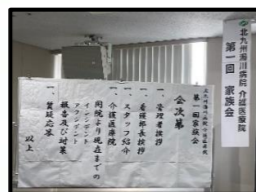 北九州湯川病院 介護医療院
第一回 家族会
北九州湯川病院介護医療院
第一回家族会
会次第
一、管理者挨拶
一、看護部長挨拶
一、スタッフ紹介
一、介護医療院
開院より現在までの
インシデント
アクシデント
報告及び対策
一、質疑応答
以上